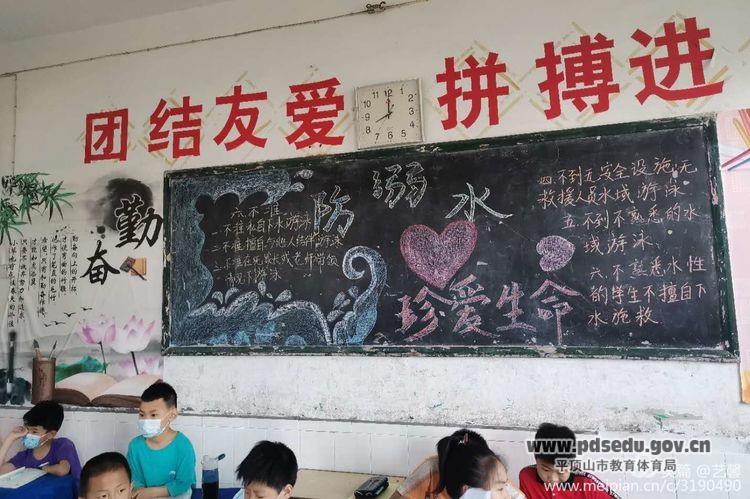 团结友爱 拼搏进
勤奋
防溺水
珍爱生命
六不一准
一不准私自下水游泳
二不准擅自与他人结伴游泳
三不准在无家长或老师带领
情况下游泳
四不到无安全设施、无
救援人员水域游泳
五不到不熟悉的水
域游泳、
六不熟悉水性
的学生不擅自下
水施救
www.pdsedu.gov.cn
平顶山市教育体育局
www.meipian.cn/c/3190490